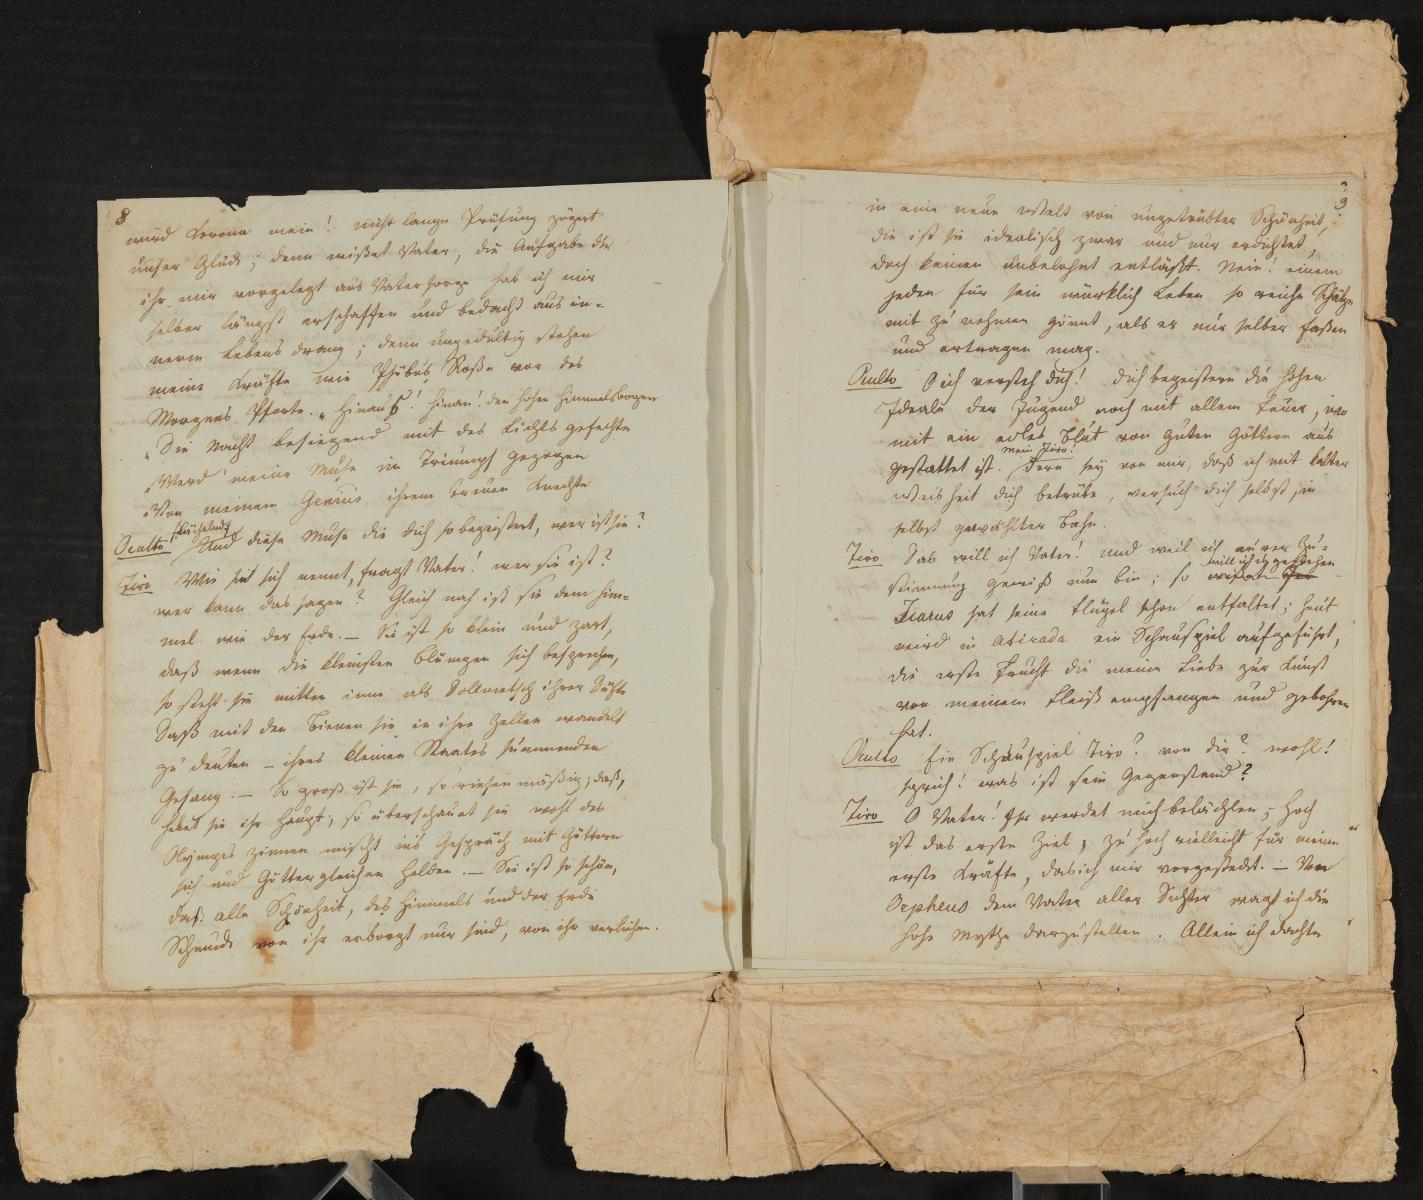 8
wird Corona mein! nicht lange Prüfung zögert
unser Glück; denn wißet Vater, die Aufgabe die
ihr mir vorgelegt aus Vatersorge hab ich mir
selber längst erschaffen und bedacht aus in-
nerm Lebensdrang; denn ungedultig stehen
meine Kräfte wie Phöbus Roße vor des
Morgens Pforte. „Hinauf! hinan! den hohen Himmelsbogen
„Die Nacht besiegend mit des Lichts gefechte
„Werd meine Muse im Triumpf gezogen
„Von meinem Genius ihrem treuen Knechte
Oculto (lächelnd) Und diese Muse die dich so begeistert, wer ist sie?
Tiro Wie sie sich nennt, fragst Vater! wer sie ist?
wer kann das sagen? Gleich nah ist sie dem Him-
mel wie der Erde. – Sie ist so klein und zart,
daß wenn die kleinsten Blümgen sich besprechen,
so steht sie mitten inne als Dollmetsch ihrer Düfte
Daß mit den Bienen sie in ihre Zellen wandelt
zu deuten – ihres kleinen Staates summenden
Gesang. – So groß ist sie, so riesenmäßig, daß,
hebet sie ihr Haupt, so überschauet sie wohl des
Olymps Zinnen mischt ins Gespräch mit Göttern
sich und Göttergleichen Helden. – Sie ist so schön,
daß alle Schönheit, des Himmels und der Erde
Schmuck von ihr erborgt nur sind, von ihr verliehen.
3
in eine neue Welt von ungetrübter Schönheit,
die ist sie idealisch zwar und nur erdichtet,
doch keinen unbelohnt entläßt. Nein! einem
jeden für sein würklich Leben so reiche Schätze
mit zu nehmen gönnt, als er nur selber faßen
und ertragen mag.
Oculto O ich versteh dich! dich begeistern die hohen
Ideale der Jugend noch mit allem Feuer, wo
mit ein edles Blut von guten Göttern aus
gestattet ist. mein Tiro! Fern sey von mir, daß ich mit kalter
Weisheit dich betrübe, versuch dich selbst, in
selbst gewählter Bahn.
Tiro Das will ich Vater! und weil ich eurer Zu-
stimmung gewiß nun bin; so will ich's gestehen
Icarus hat seine Flügel schon entfaltet; heut
wird in Abirada ein Schauspiel aufgeführt,
die erste Frucht die meine Liebe zur Kunst
von meinem Fleiß empfangen und gebohren
hat.
Oculto Ein Schauspiel Tiro? von dir? wohl!
sprich! was ist sein Gegenstand?
Tiro O Vater! Ihr werdet mich belächlen; Hoch
ist das erste Ziel, zu hoch vielleicht für meine
erste Kräfte, das ich mir vorgesteckt. – Von
Orpheus dem Vater aller Dichter wagt ich die
hohe Mythe darzustellen. Allein ich dachte